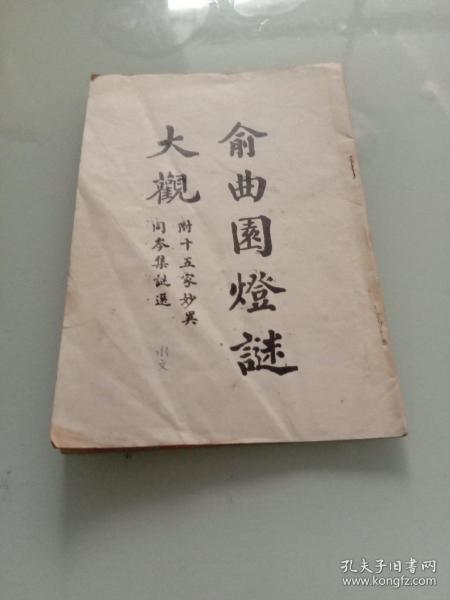 俞曲園燈謎
大觀
附十五家妙異
同岑集謎選
水文
孔夫子旧书网
www.kongfz.com